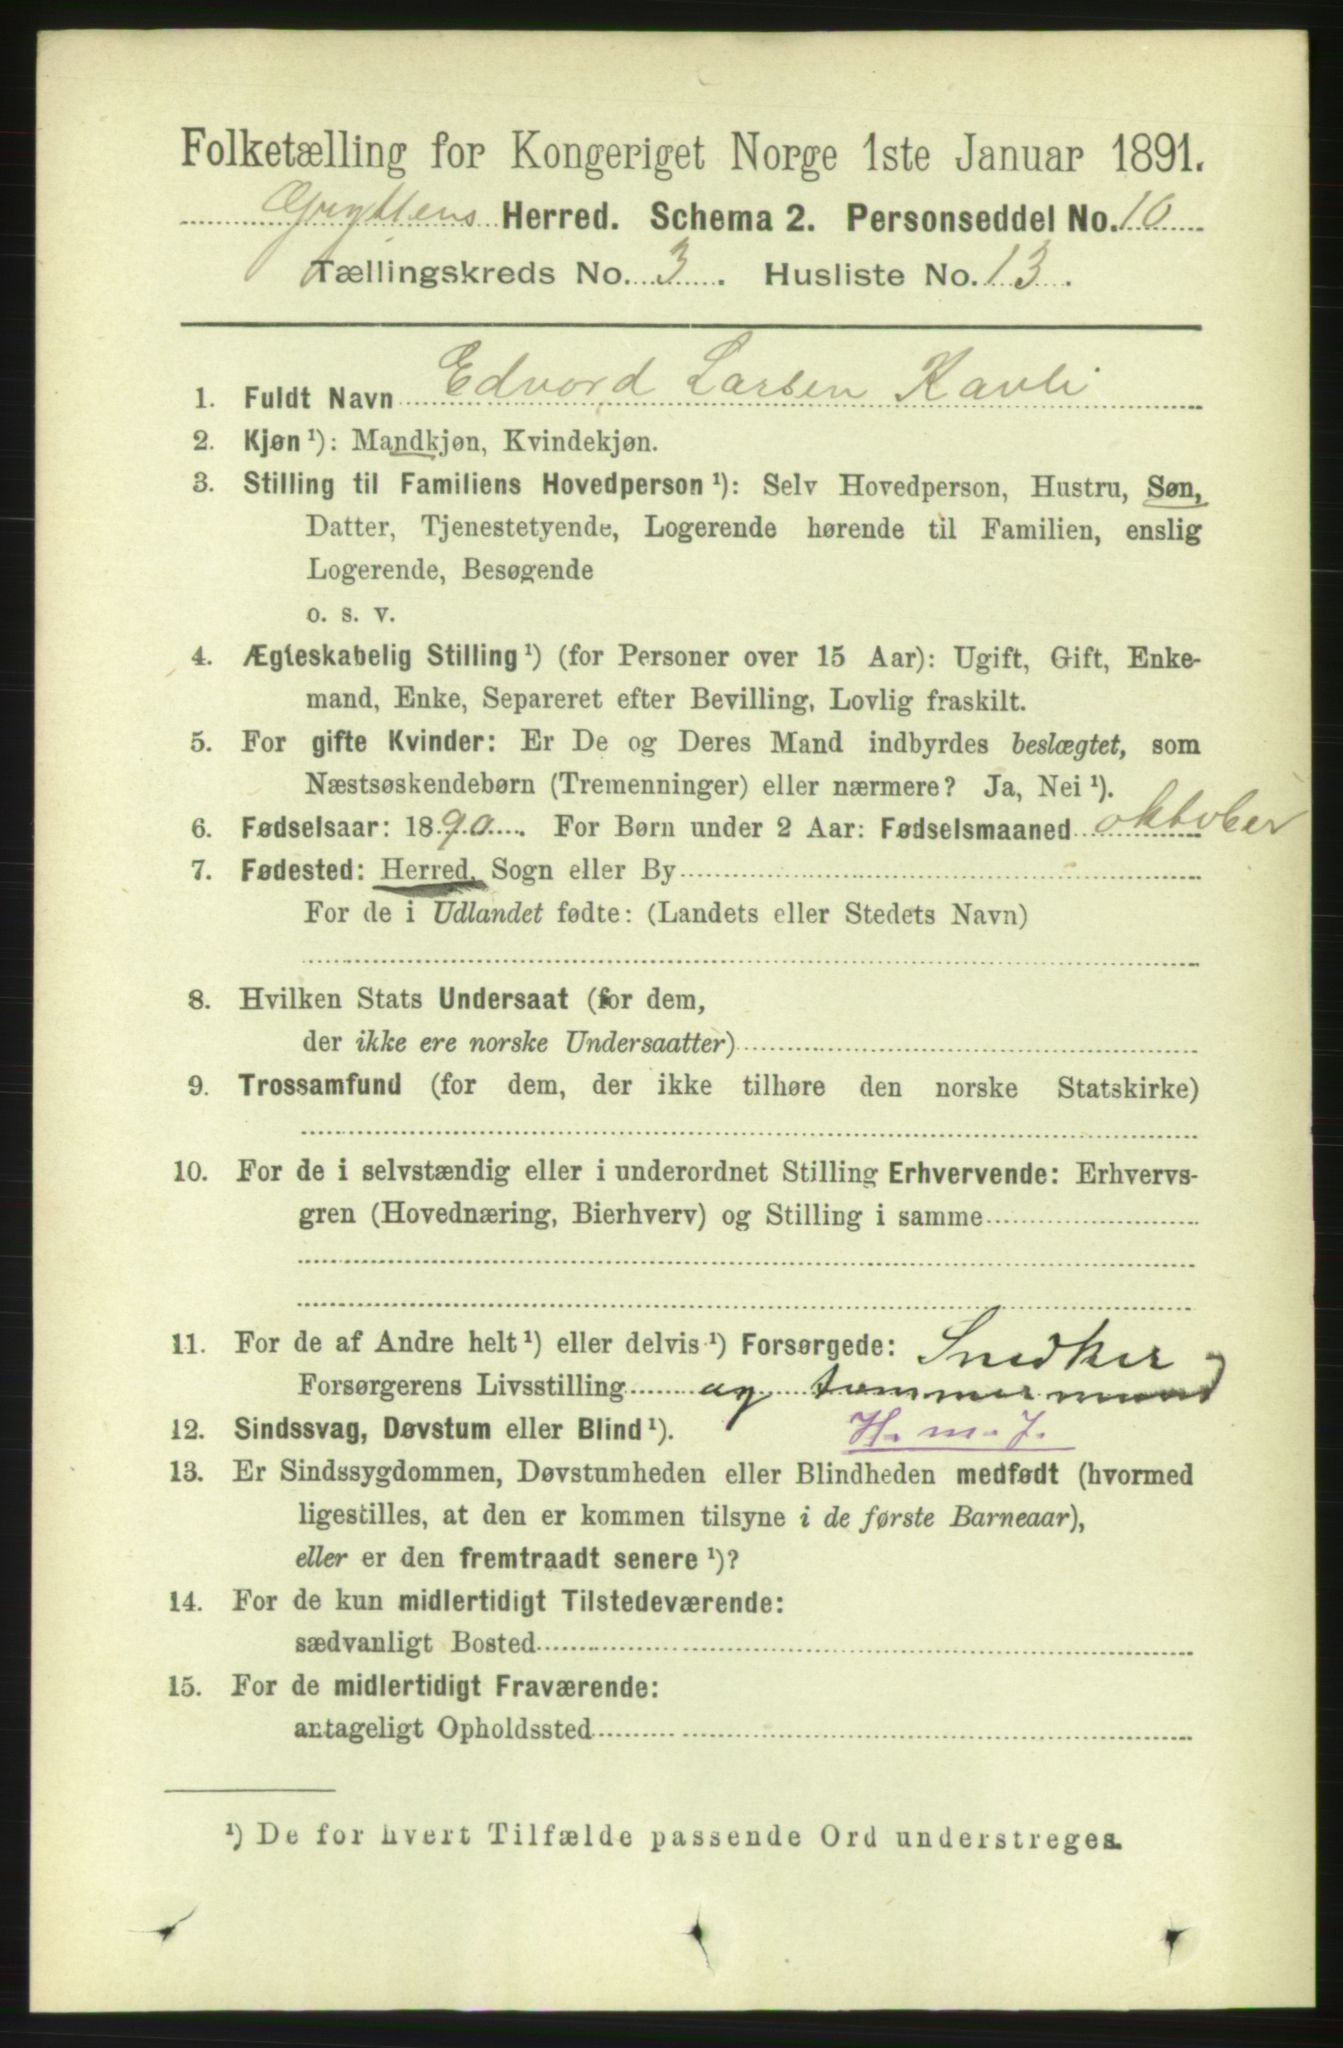 Folketælling for Kongeriget Norge 1ste Januar 1891.
Gryttens Herred. Schema 2. Personseddel No. 10
Tællingskreds No. 3. Husliste No. 13.
1. Fuldt Navn Edvard Larsen Kavli
2. Kjøn ¹): Mandkjøn, Kvindekjøn.
3. Stilling til Familiens Hovedperson ¹): Selv Hovedperson, Hustru, Søn,
Datter, Tjenestetyende, Logerende hørende til Familien, enslig
Logerende, Besøgende
o. s. v.
4. Ægteskabelig Stilling ¹) (for Personer over 15 Aar): Ugift, Gift, Enke-
mand, Enke, Separeret efter Bevilling, Lovlig fraskilt.
5. For gifte Kvinder: Er De og Deres Mand indbyrdes beslægtet, som
Næstsøskendebørn (Tremenninger) eller nærmere? Ja, Nei ¹).
6. Fødselsaar: 1890. For Børn under 2 Aar: Fødselsmaaned oktober
7. Fødested: Herred, Sogn eller By
For de i Udlandet fødte: (Landets eller Stedets Navn)
8. Hvilken Stats Undersaat (for dem,
der ikke ere norske Undersaatter)
9. Trossamfund (for dem, der ikke tilhøre den norske Statskirke)
10. For de i selvstændig eller i underordnet Stilling Erhvervende: Erhvervs-
gren (Hovednæring, Bierhverv) og Stilling i samme
11. For de af Andre helt ¹) eller delvis ¹) Forsørgede: Snedker
Forsørgerens Livsstilling og tømmermand
12. Sindssvag, Døvstum eller Blind ¹). H. m. J.
13. Er Sindssygdommen, Døvstumheden eller Blindheden medfødt (hvormed
ligestilles, at den er kommen tilsyne i de første Barneaar),
eller er den fremtraadt senere ¹)?
14. For de kun midlertidigt Tilstedeværende:
sædvanligt Bosted
15. For de midlertidigt Fraværende:
antageligt Opholdssted
¹) De for hvert Tilfælde passende Ord understreges.